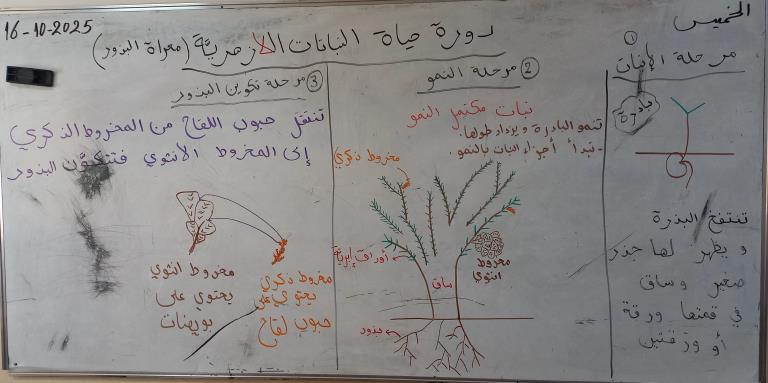 الخميس
16-10-2025
دورة حياة النباتات اللازهرية (معراة البذور)
①
مرحلة الإنبات
بادرة
تنتفخ البذرة
ويظهر لها جذر
صغير وساق
في قمتها ورقة
أو ورقتين
② مرحلة النمو
نبات مكتمل النمو
تنمو البادرة ويزداد طولها.
- تبدأ أجزاء النبات بالنمو.
مخروط ذكري
أوراق إبرية
مخروط
انثوي
ساق
جذور
③ مرحلة تكوين البذور
تنتقل حبوب اللقاح من المخروط الذكري
إلى المخروط الأنثوي فتتكون البذور
مخروط انثوي
يحتوي على
بويضات
مخروط ذكري
يحتوي على
حبوب لقاح